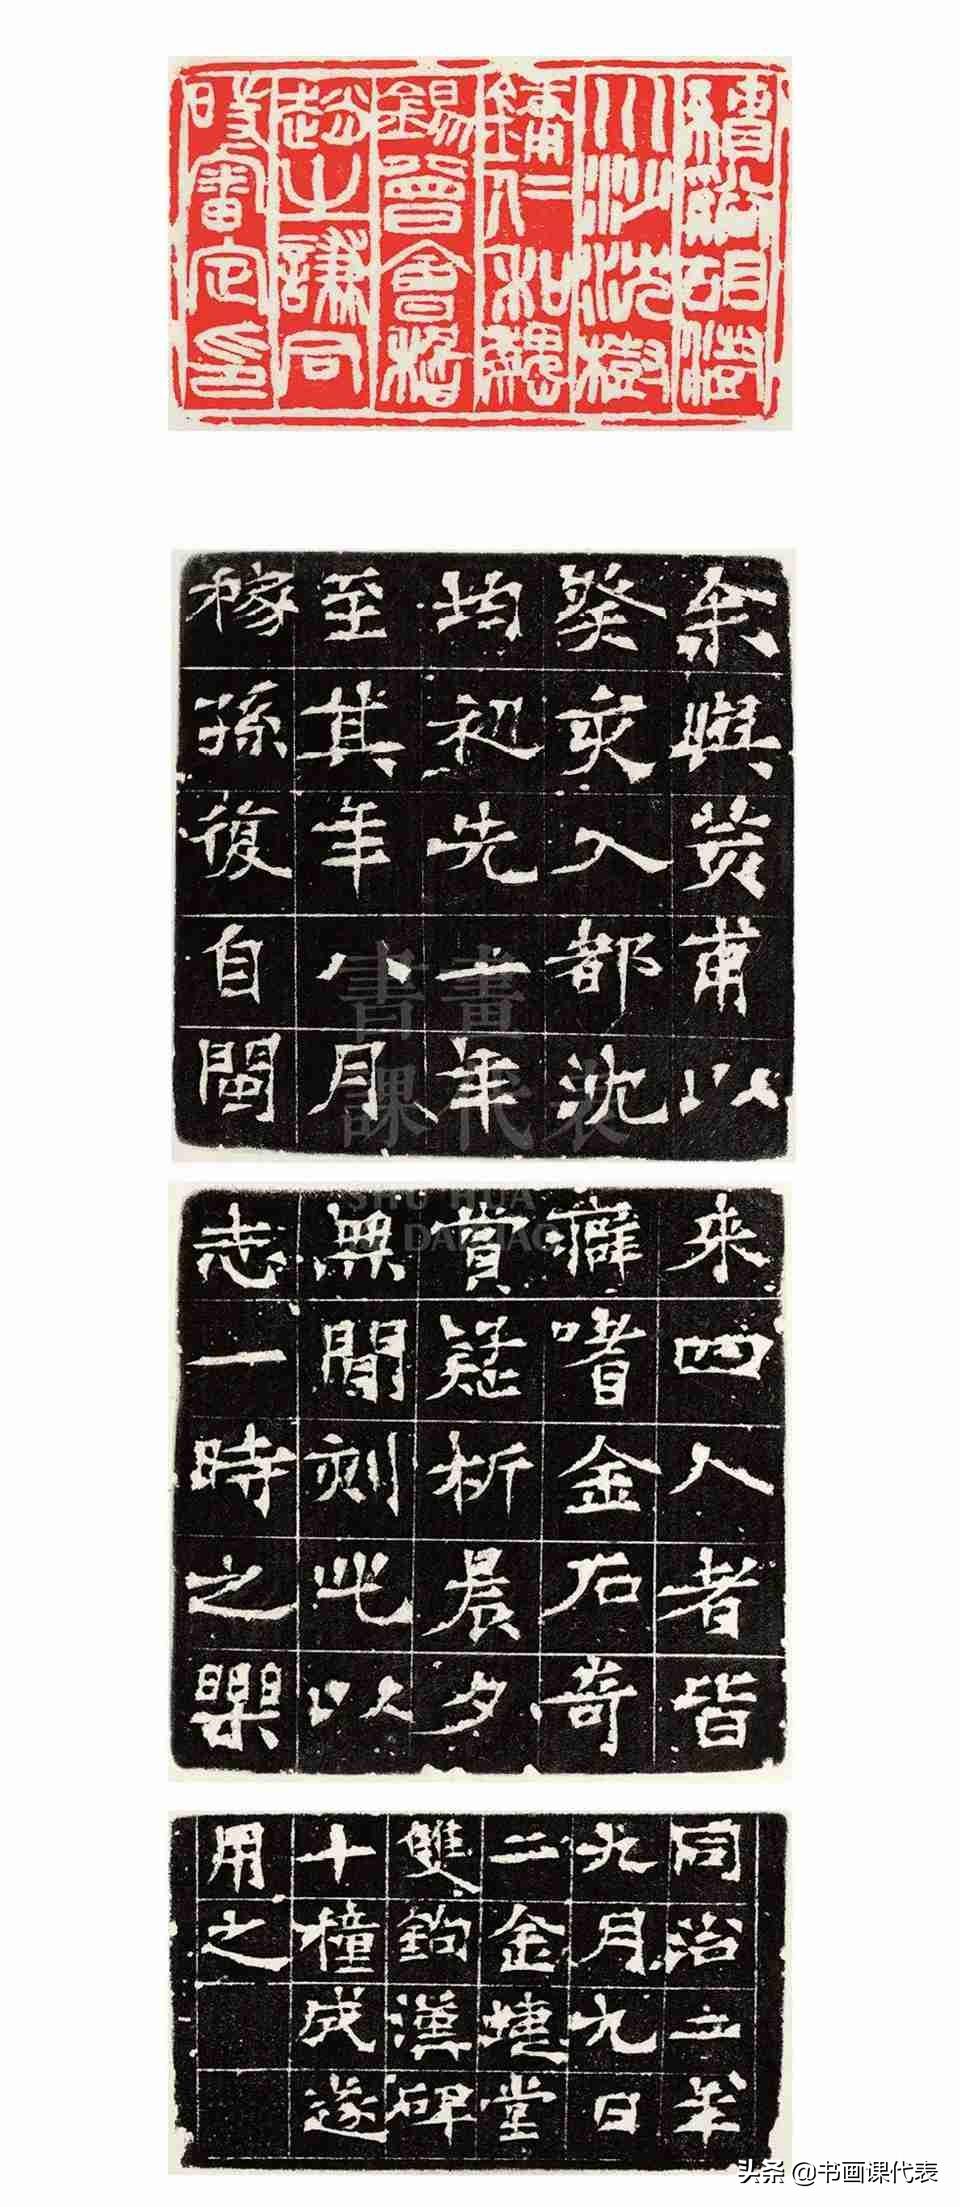 績谿胡澍
川沙沈樹
鏞仁和魏
錫曾會稽
趙之謙同
時審定印
余與荄甫以
癸亥入都沈
均初先一年
至其年八月
稼孫復自閩
書畫
課代表
SHU HUA
KE DAI BIAO
來四人者皆
癖嗜金石奇
賞疑析晨夕
無閒刻此以
志一時之樂
同治二年
九月九日
二金蜨堂
雙鉤漢碑
十穜成遂
用之
头条 @书画课代表